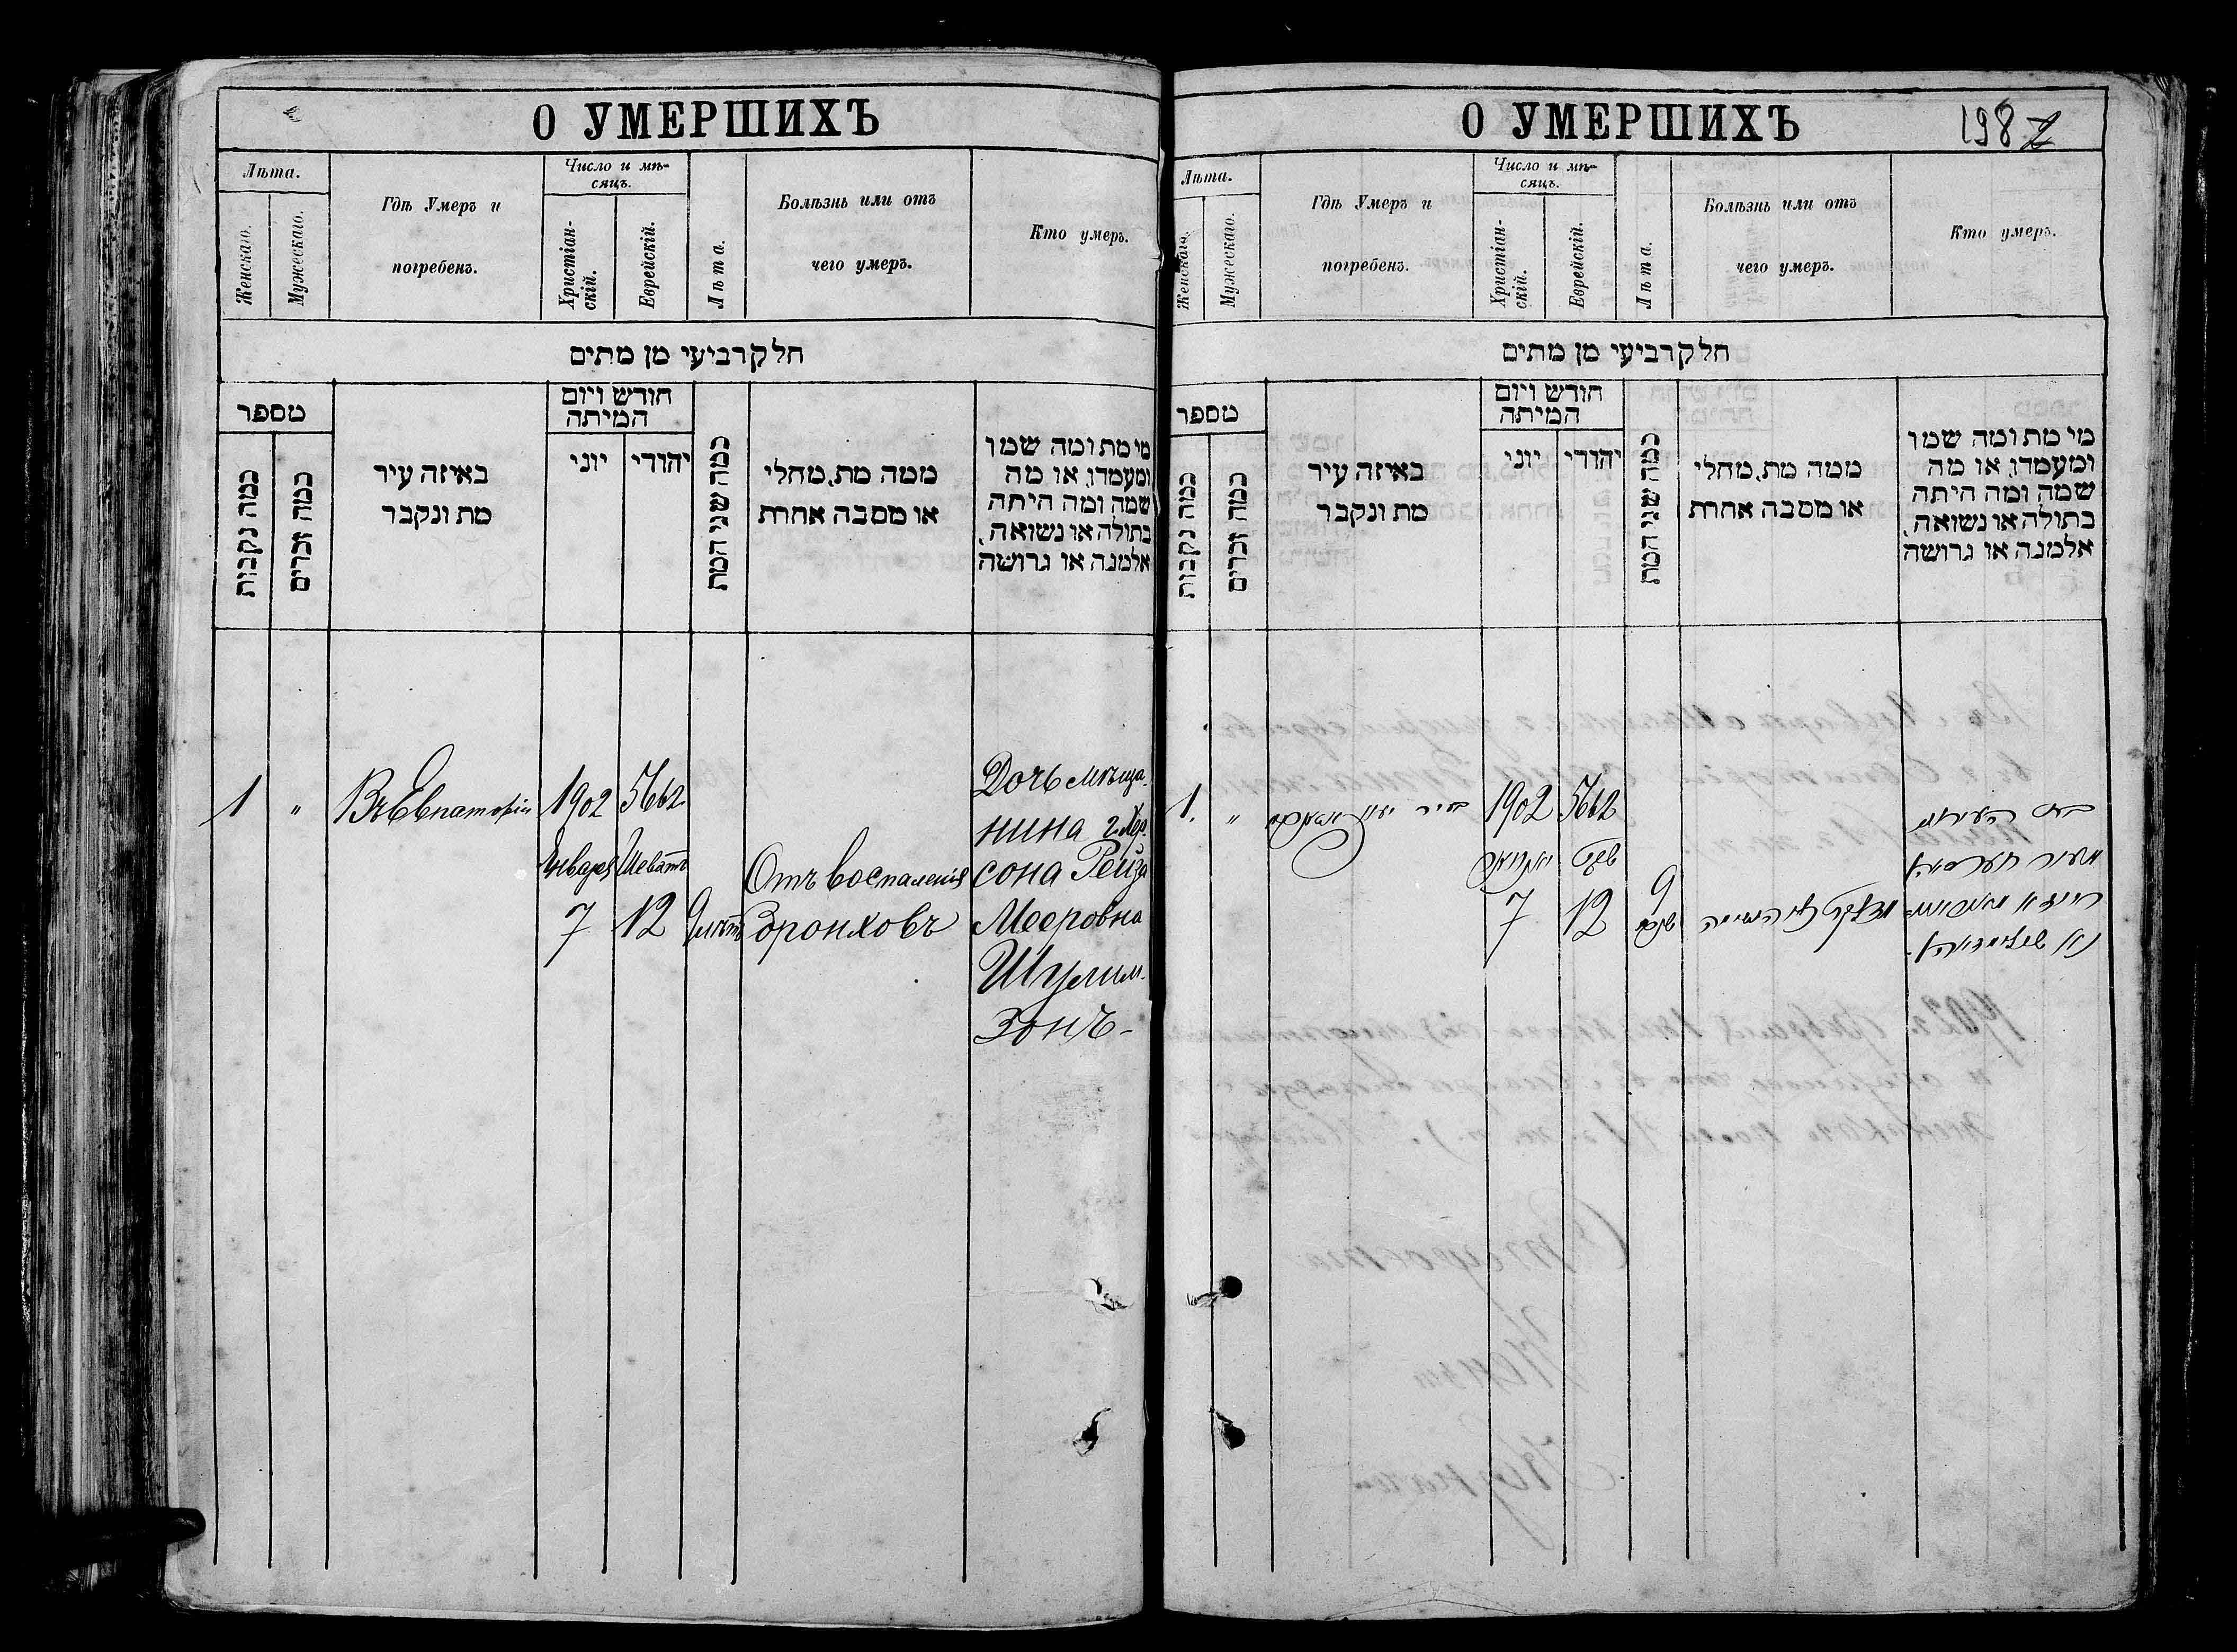 О УМЕРШИХЪ
Лѣта.
Женскаго.
Мужескаго.
Гдѣ Умеръ и
погребенъ.
Число и мѣ-
сяцъ.
Христіан-
скій.
Еврейскій.
Лѣта.
Болѣзнь или отъ
чего умеръ.
Кто умеръ.
חלק רביעי מן מתים
מספר
כמה נקבות
כמה זכרים
באיזה עיר
מת ונקבר
חודש ויום
המיתה
יוני
יהודי
כמה שני המת
ממה מת, מחלי
או מסבה אחרת
מי מת ומה שמו
ומעמדו, או מה
שמה ומה היתה
בתולה או נשואה,
אלמנה או גרושה
1
"
Въ Евпаторіи
1902
Января
7
5662
Шеватъ
12
9 лѣтъ
Отъ воспаленія
бронховъ
Дочь мѣща-
нина г. Хер-
сона Рейза
Мееровна
Шулим-
зонъ-
О УМЕРШИХЪ
198
Лѣта.
Женскаго.
Мужескаго.
Гдѣ Умеръ и
погребенъ.
Число и мѣ-
сяцъ.
Христіан-
скій.
Еврейскій.
Лѣта.
Болѣзнь или отъ
чего умеръ.
Кто умеръ.
חלק רביעי מן מתים
מספר
כמה נקבות
כמה זכרים
באיזה עיר
מת ונקבר
חודש ויום
המיתה
יוני
יהודי
כמה שני המת
ממה מת, מחלי
או מסבה אחרת
מי מת ומה שמו
ומעמדו, או מה
שמה ומה היתה
בתולה או נשואה,
אלמנה או גרושה
1.
"
בעיר
1902
יאנואר
7
5662
שבט
12
9
שנים